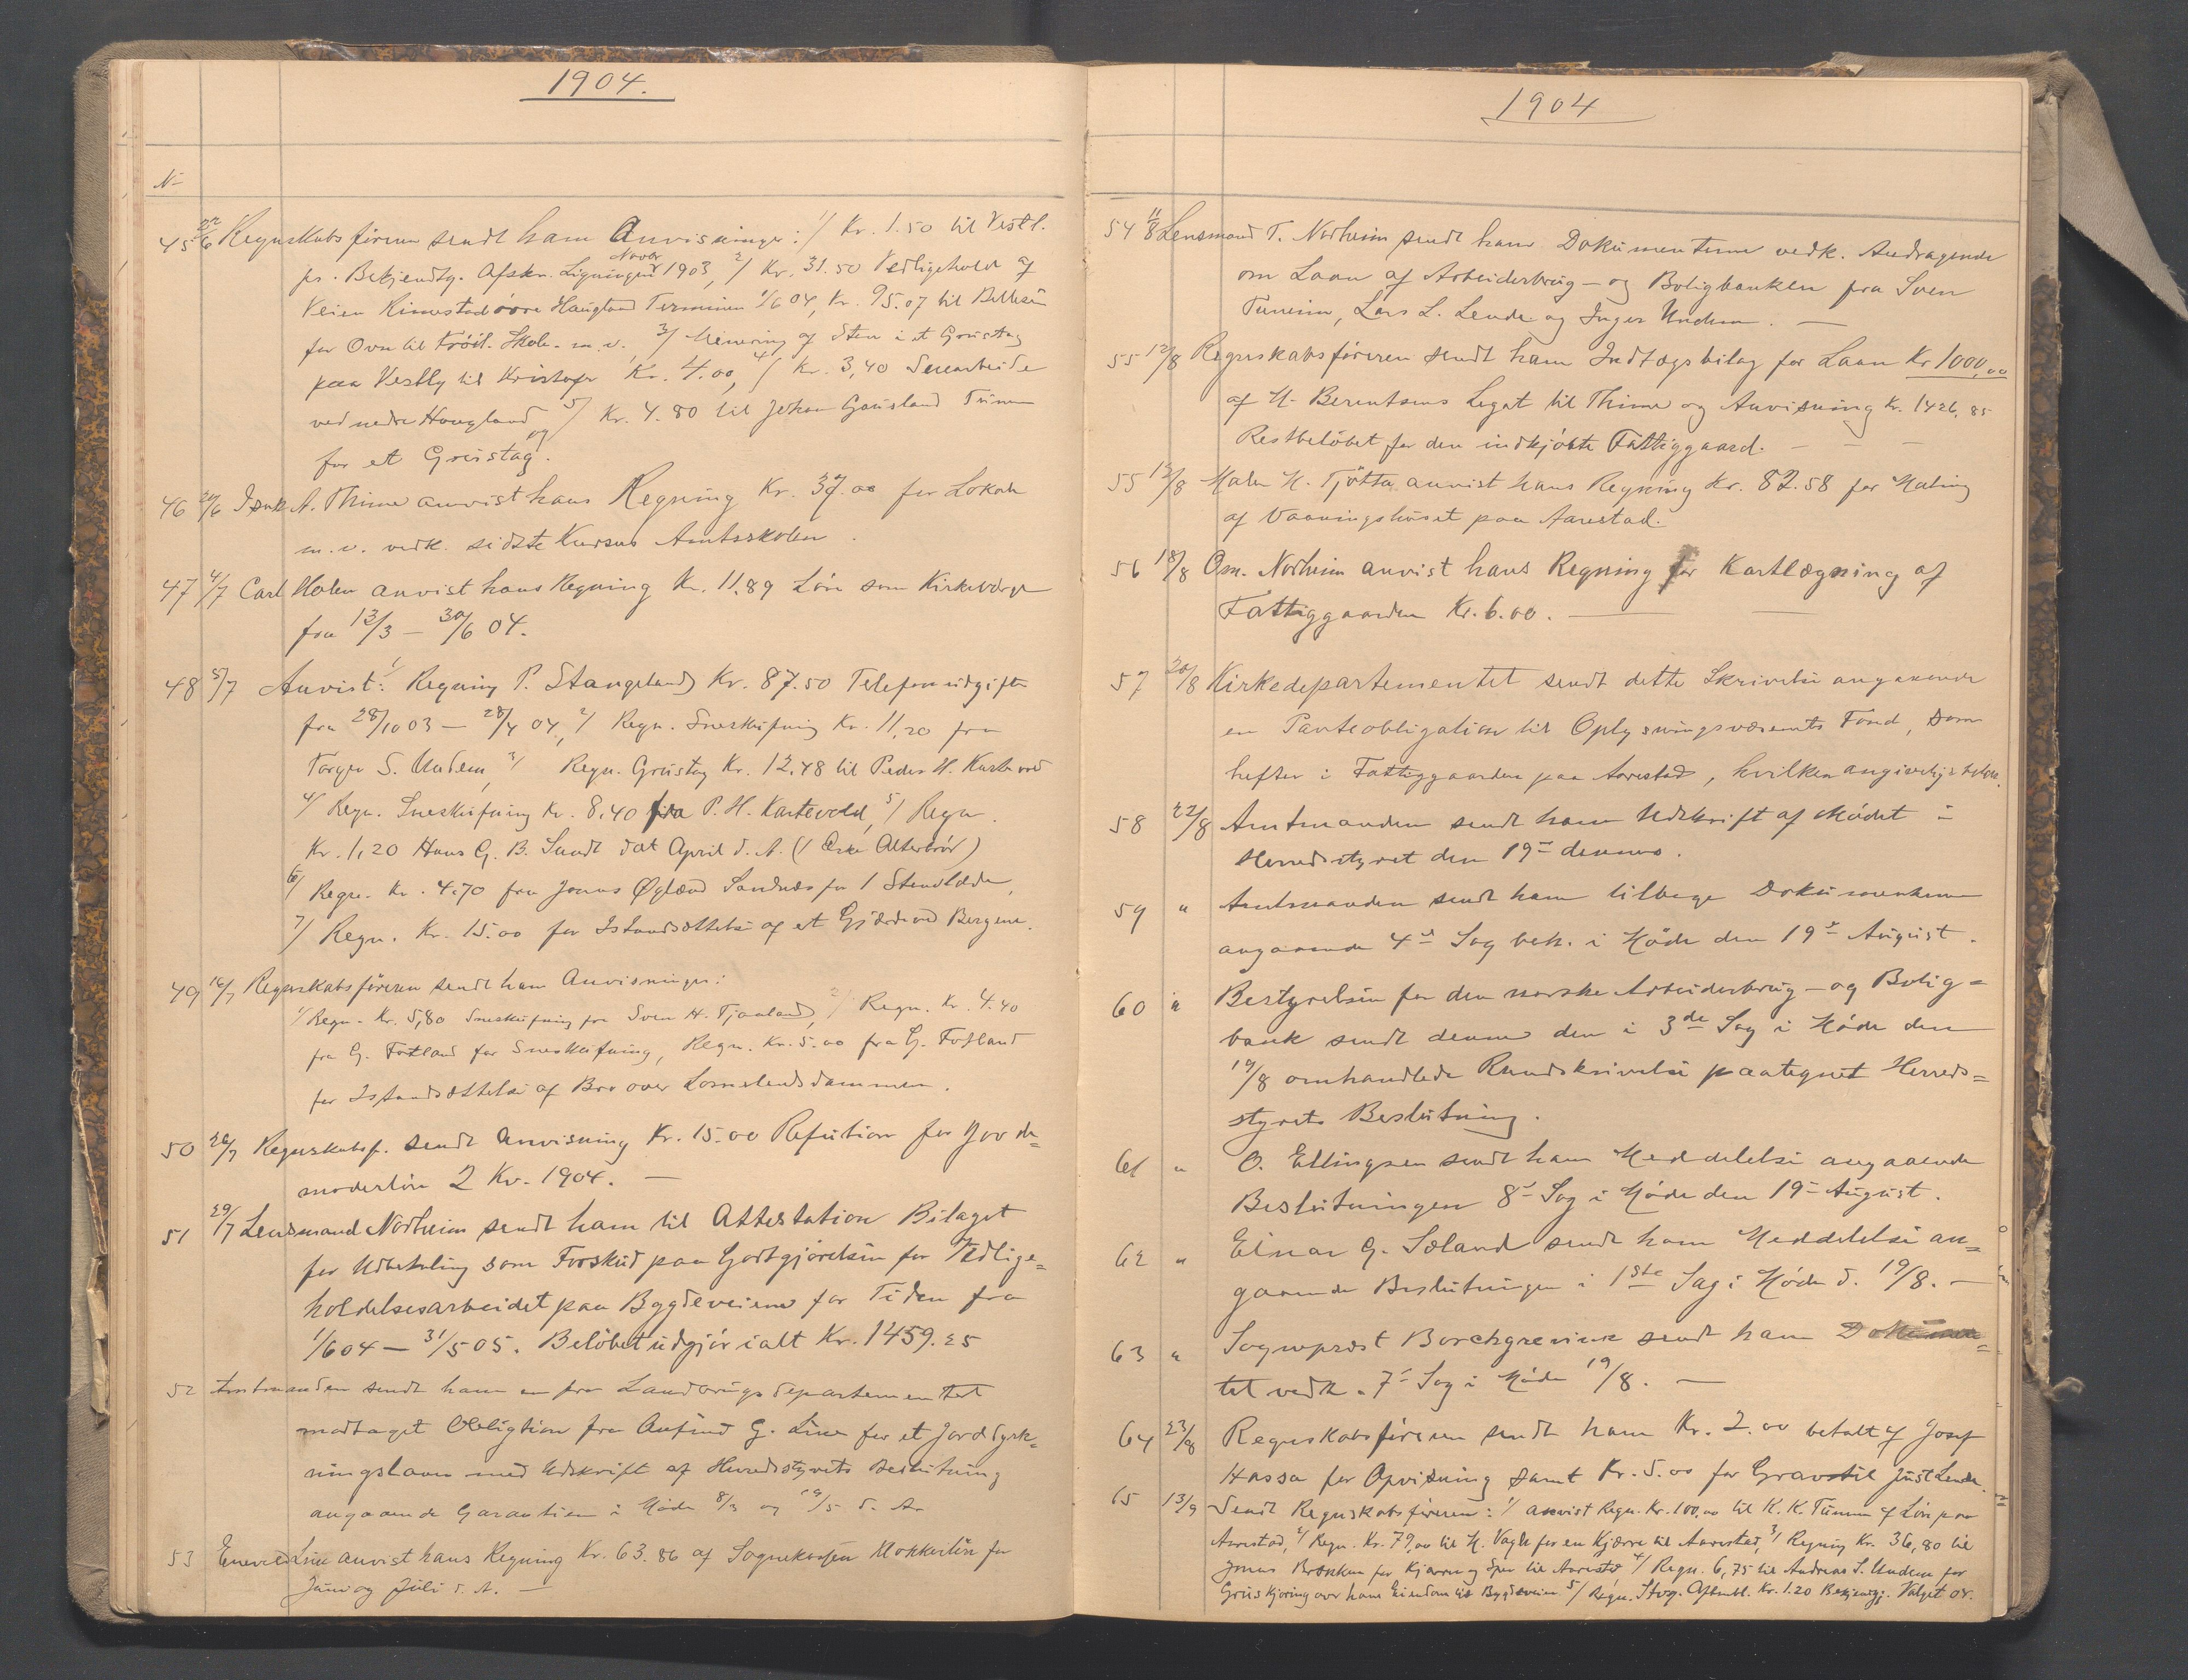 1904.
No
45 22/6 Regnskabsføreren sendt ham Anvisninger: 1/ Kr. 1.50 til Vestl.
ps. Bekjendtg. Afskr. Ligningen 1903, 2/ Kr. 31.50 Vedligehold af
Veien Rimestad øvre Haugland Terminen 1/6 04, Kr. 95.07 til
for Ovn til Skole m.v. 3/ Minering af Sten i et Grustag
paa Vestly til Kristofer Kr. 4.00, 4/ Kr. 3,40
ved nedre Haugland og 5/ Kr. 4.80 til Johan Gausland Tunem
for et Grustag.
46 A. Thime anvist hans Regning Kr. 37.00 for Lokale
m.v. vedk. sidste Kursus Amtsskolen.
47 4/7 Carl Halen anvist hans Regning Kr. 11.89 Løn som Kirkeværge
fra 13/3 – 30/6 04.
48 5/7 Anvist: 1/ Regning P. Stangeland Kr. 87.50 Telefonudgifter
fra 28/10 03 – 28/4 04, 2/ Regn. Sneskufning Kr. 11,20 fra
Torger S. Undem, 3/ Regn. Grustag Kr. 12.48 til Peder H. Kartevold
4/ Regn. Sneskufning Kr. 8,40 fra P. H. Kartevold, 5/ Regn.
Kr. 1,20 Hans G. B. Sundt dat April d. A. (1 Æske Alterbrød)
6/ Regn. Kr. 4.70 fra Jonas Øglænd Sandnæs for 1
7/ Regn. Kr. 15.00 for Istandsættelse af et Gjærde ved Bergene.
49 16/7 Regnskabsføreren sendt ham Anvisninger:
1/ Regn. Kr. 5,80 Sneskufning fra Sven H. Tjaaland, 2/ Regn. Kr. 4.40
fra G. Fotland for Sneskufning, Regn. Kr. 5.00 fra G. Fotland
for Istandsættelse af Bro over
50 26/7 Regnskabsf. sendt Anvisning Kr. 15.00 Refution for Jorde=
moderløn 2 Kv. 1904. —
51 29/7 Lensmand Norheim sendt ham til Attestation Bilaget
for Udbetaling som Forskud paa Godtgjørelsen for Vedlige=
holdelsesarbeidet paa Bygdeveiene for Tiden fra
1/6 04 – 31/5 05. Beløbet udgjør ialt Kr. 1459.25
52 Amtmanden sendt ham en fra Landbrugsdepartementet
modtaget Obligtion fra Anfind G. Line for et Jorddyrk=
ningslaan med Udskrift af Herredsstyrets Beslutning
angaaende Garantien i Møde 8/3 og 19/5 d. A.
53 Enevald Line anvist hans Regning Kr. 63.86 af Sognekassen Klokkerløn for
Juni og Juli d. A. —
1904
54 11/8 Lensmand T. Norheim sendt ham Dokumenterne vedk. Andragende
om Laan af Arbeiderbrug- og Boligbanken fra Sven
Tunheim, Lars L. Lende og Inger Undem. —
55 12/8 Regnskabsføreren sendt ham Indtægsbilag for Laan Kr 1000,00
af H. Berentsens Legat til Thime og Anvisning Kr. 1426,85
Restbeløbet for den indkjøbte Fattiggaard. — — —
55 12/8 Maler H. Tjøtta anvist hans Regning Kr. 82.58 for Maling
af Vaaningshuset paa Aarestad.
56 18/8 Om. Norheim anvist hans Regning for Kartlægning af
Fattiggaarden Kr. 6.00. — —
57 20/8 Kirkedepartementet sendt dette Skrivelse angaaende
en Panteobligation til Oplysningsvæsenets Fond, som
hefter i Fattiggaarden paa Aarestad, hvilken angivelig
58 22/8 Amtmanden sendt ham Udskrift af Mødet i
Herredsstyret den 19de dennes.
59 " Amtmanden sendt ham tilbage Dokumenterne
angaaende 4de Sag beh. i Møde den 19de August.
60 " Bestyrelsen for den norske Arbeiderbrug- og Bolig=
bank sendt denne den i 3de Sag i Møde den
19/8 omhandlede Rundskrivelse paategnet Herreds=
styrets Beslutning.
61 " O. Ellingsen sendt ham Meddelelse angaaende
Beslutningen 8de Sag i Møde den 19de August.
62 " Einar G. Sæland sendt ham Meddelelse an=
gaaende Beslutningen i 1ste Sag i Møde d. 19/8. —
63 " Sogneprest Borchgrevink sendt ham Dokumen=
tet vedk. 7de Sag i Møde 19/8. —
64 23/8 Regnskabsføreren sendt ham Kr. 2.00 betalt af Josef
Hassa for Opvisning samt Kr. 5.00 for Gravstil Just Lende.
65 13/9 Sendt Regnskabsføreren: 1/ anvist Regn. Kr. 100,00 til K. K. Tunem af Løn paa
Aarestad, 2/ Regn. Kr. 79,00 til H. Vagle for en Kjærre til Aarestad, 3/ Regning Kr. 36,80 til
Jonas Brekken for Kjærre og til Aarestad 4/ Regn. 6,75 til Andreas S. Undem for
Gruskjøring over hans Eiendom til Bygdeveien 5/ Regn. Stvg. Aftenbl. Kr. 1.20 Bekjendtgj. Valget 04.